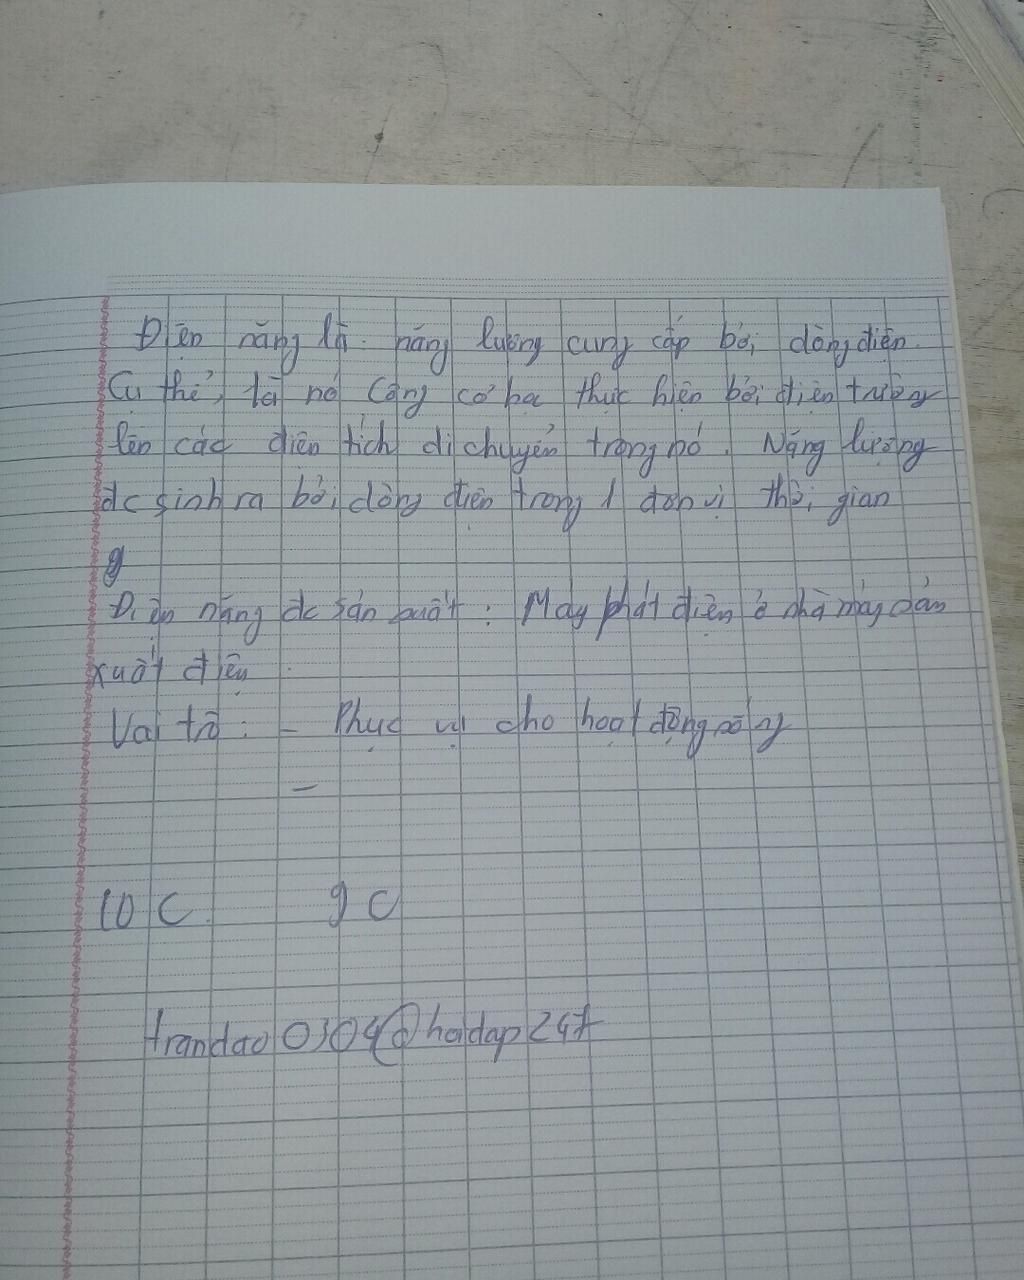 Điện năng là năng lượng cung cấp bởi dòng điện.
Cụ thể, là nó công cơ học thực hiện bởi điện trường
lên các điện tích di chuyển trong nó. Năng lượng
đc sinh ra bởi dòng điện trong 1 đơn vị thời gian
g
Điện năng đc sản xuất : Máy phát điện ở nhà máy sản
xuất điện
Vai trò : - Phục vụ cho hoạt động sống
-
10 C. 9 C
trandao0304@hoidap247